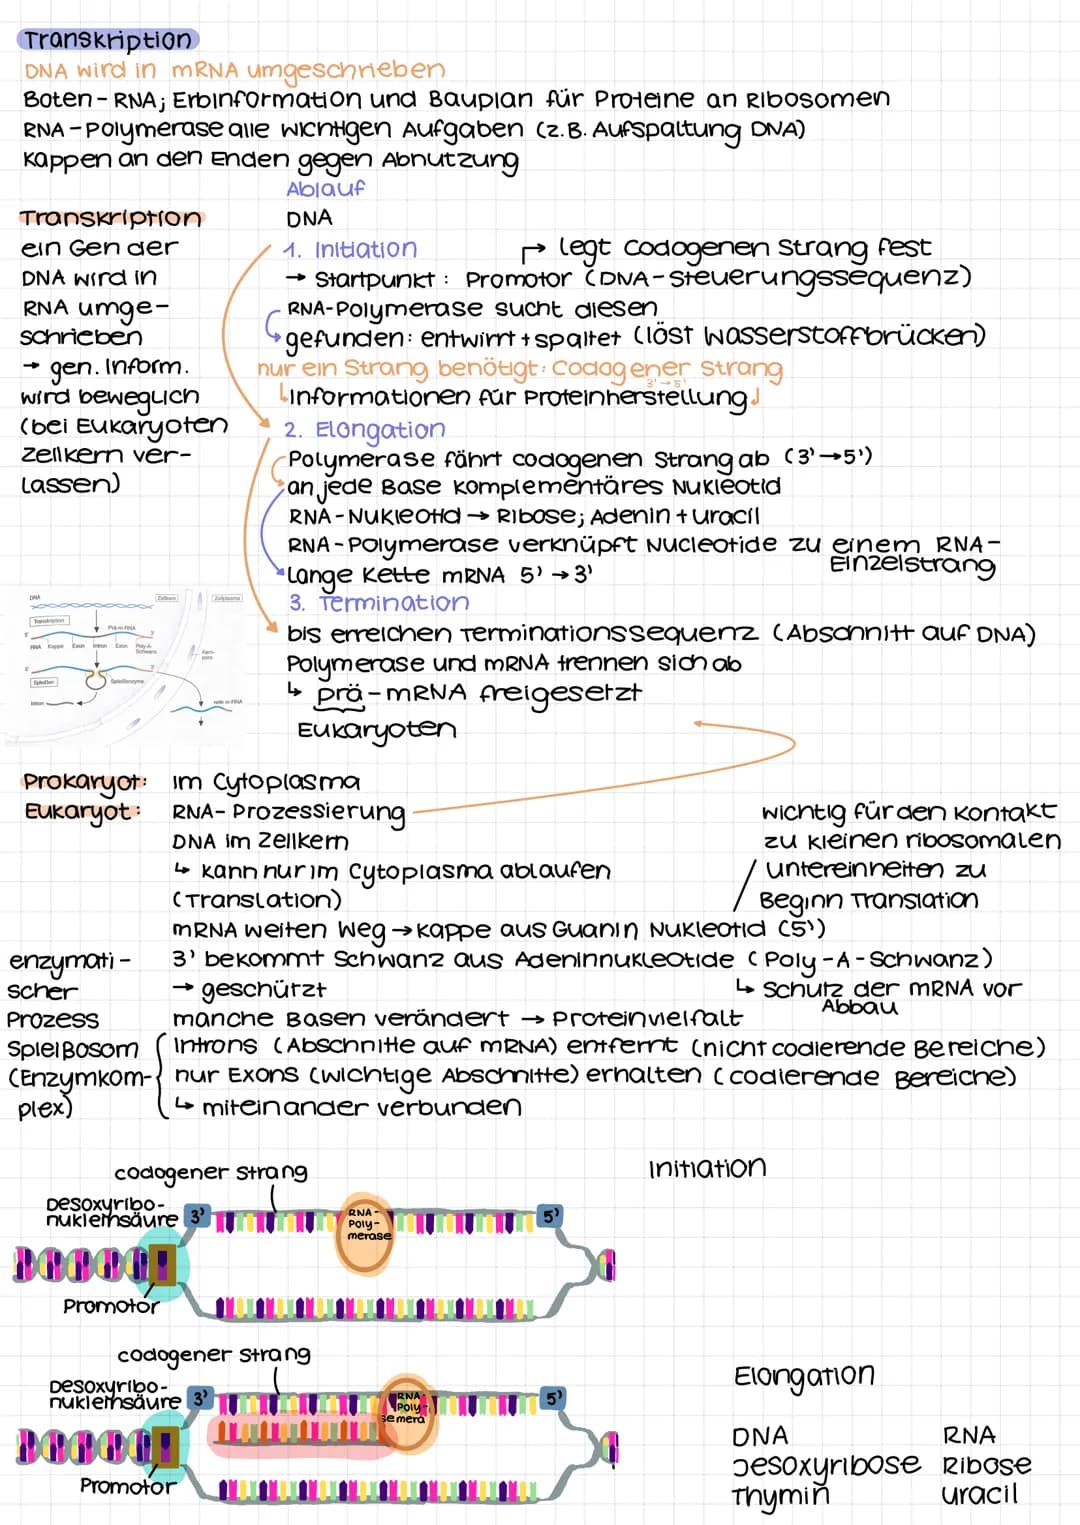 Transkription
DNA wird in mRNA umgeschrieben
Boten-RNA; Erbinformation und Bauplan für Proteine an Ribosomen
RNA-Polymerase alle wichtigen Aufgaben (z.B. Aufspaltung DNA)
Kappen an den Enden gegen Abnutzung
Transkription
ein Gen der
DNA wird in
RNA umge-
schrieben
→ gen. Inform.
wird beweglich
(bei Eukaryoten
Zellkern ver-
lassen)
Ablauf
DNA
1. Initiation
↱ legt codogenen Strang fest
→ Startpunkt: Promotor (DNA-Steuerungssequenz)
RNA-Polymerase sucht diesen
↳ gefunden: entwirrt + spaltet (löst Wasserstoffbrücken)
nur ein Strang benötigt: Codogener Strang
3'→5'
↳ Informationen für Proteinherstellung
2. Elongation
Polymerase fährt codogenen Strang ab (3'→5')
an jede Base komplementäres Nukleotid
RNA-Nukleotid → Ribose; Adenin + Uracil
RNA-Polymerase verknüpft Nucleotide zu einem RNA-
Einzelstrang
Lange Kette mRNA 5' → 3'
3. Termination
bis erreichen Terminationssequenz (Abschnitt auf DNA)
Polymerase und mRNA trennen sich ab
↳ prä-mRNA freigesetzt
Eukaryoten
DNA
Zellkern
Zellplasma
Transkription
Prä-m-RNA
5'
3'
RNA Kappe Exon Intron Exon Poly-A-
Schwanz
Kern-
pore
5'
3'
Spleißen
Spleißenzyme
Intron
reife m-RNA
Prokaryot: im Cytoplasma
Eukaryot: RNA-Prozessierung
DNA im Zellkern
↳ kann nur im Cytoplasma ablaufen
(Translation)
wichtig für den Kontakt
zu kleinen ribosomalen
untereinheiten zu
Beginn Translation
mRNA weiten Weg → Kappe aus Guanin Nukleotid (5')
3' bekommt Schwanz aus Adeninnukleotide (Poly-A-Schwanz)
→ geschützt
↳ Schutz der mRNA vor
Abbau
manche Basen verändert → Proteinvielfalt
enzymati-
scher
Prozess
Spleißosom
(Enzymkom-
plex)
Introns (Abschnitte auf mRNA) entfernt (nicht codierende Bereiche)
nur Exons (wichtige Abschnitte) erhalten (codierende Bereiche)
↳ miteinander verbunden
Initiation
codogener Strang
Desoxyribo-
nukleinsäure
3'
RNA-
Poly-
merase
5'
Promotor
codogener Strang
Desoxyribo-
nukleinsäure
3'
RNA-
Poly-
semera
5'
Promotor
Elongation
DNA RNA
Desoxyribose Ribose
Thymin Uracil